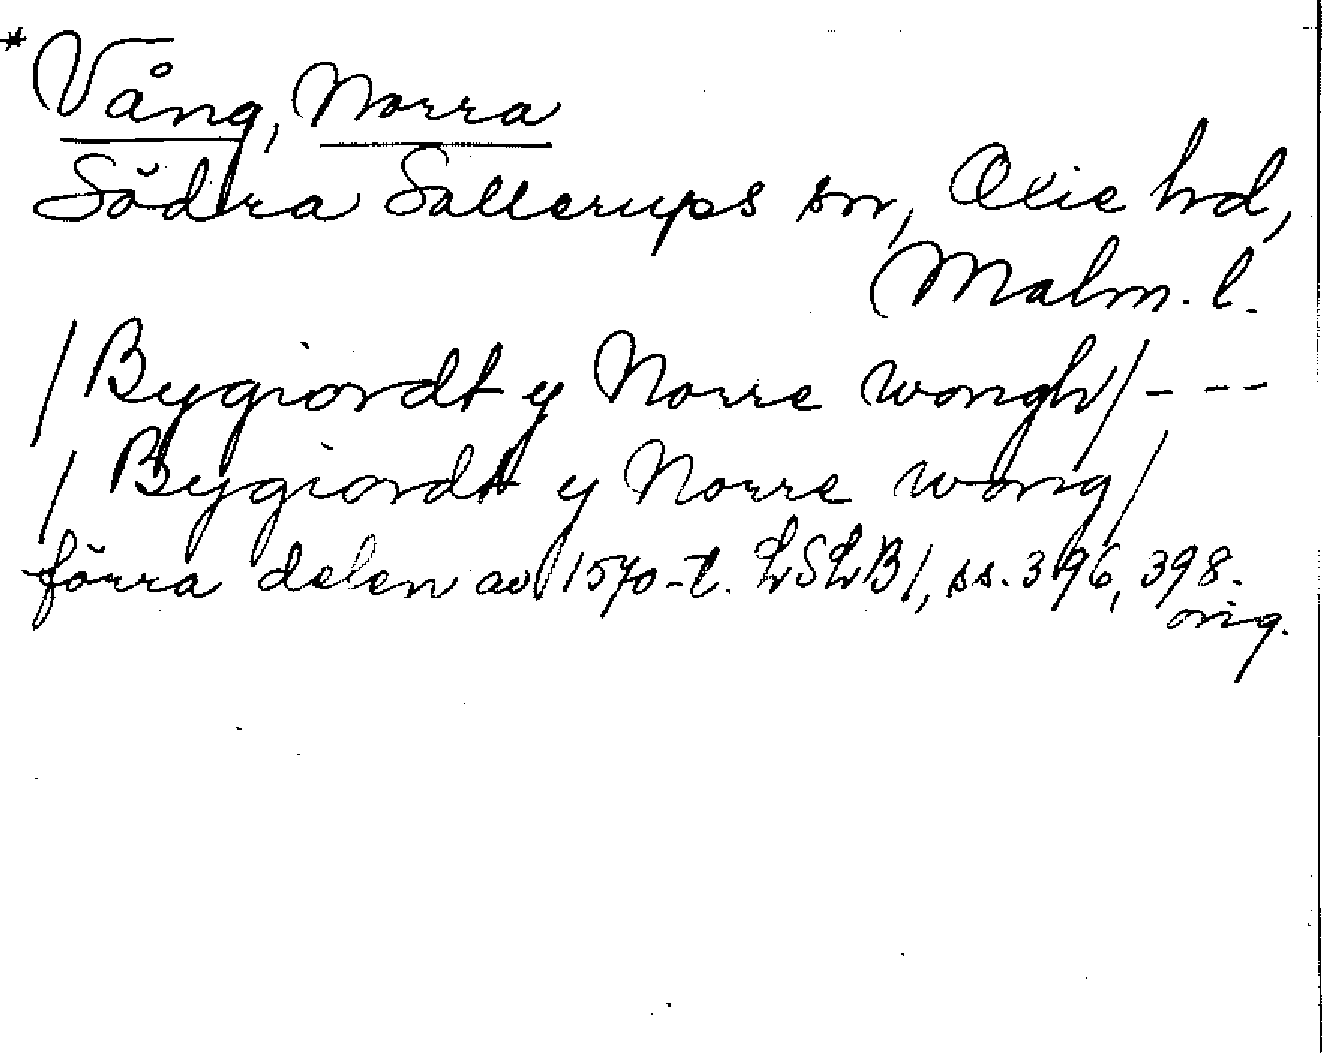 * Vång, Norra
Södra Sallerups sn, Oxie hd,
Malm. l.
/Bygiordt y Norre wongh/ - - -
/Bygiordt y Norre wong/
förra delen av 1570-t. LSLB1, ss. 396, 398.
orig.